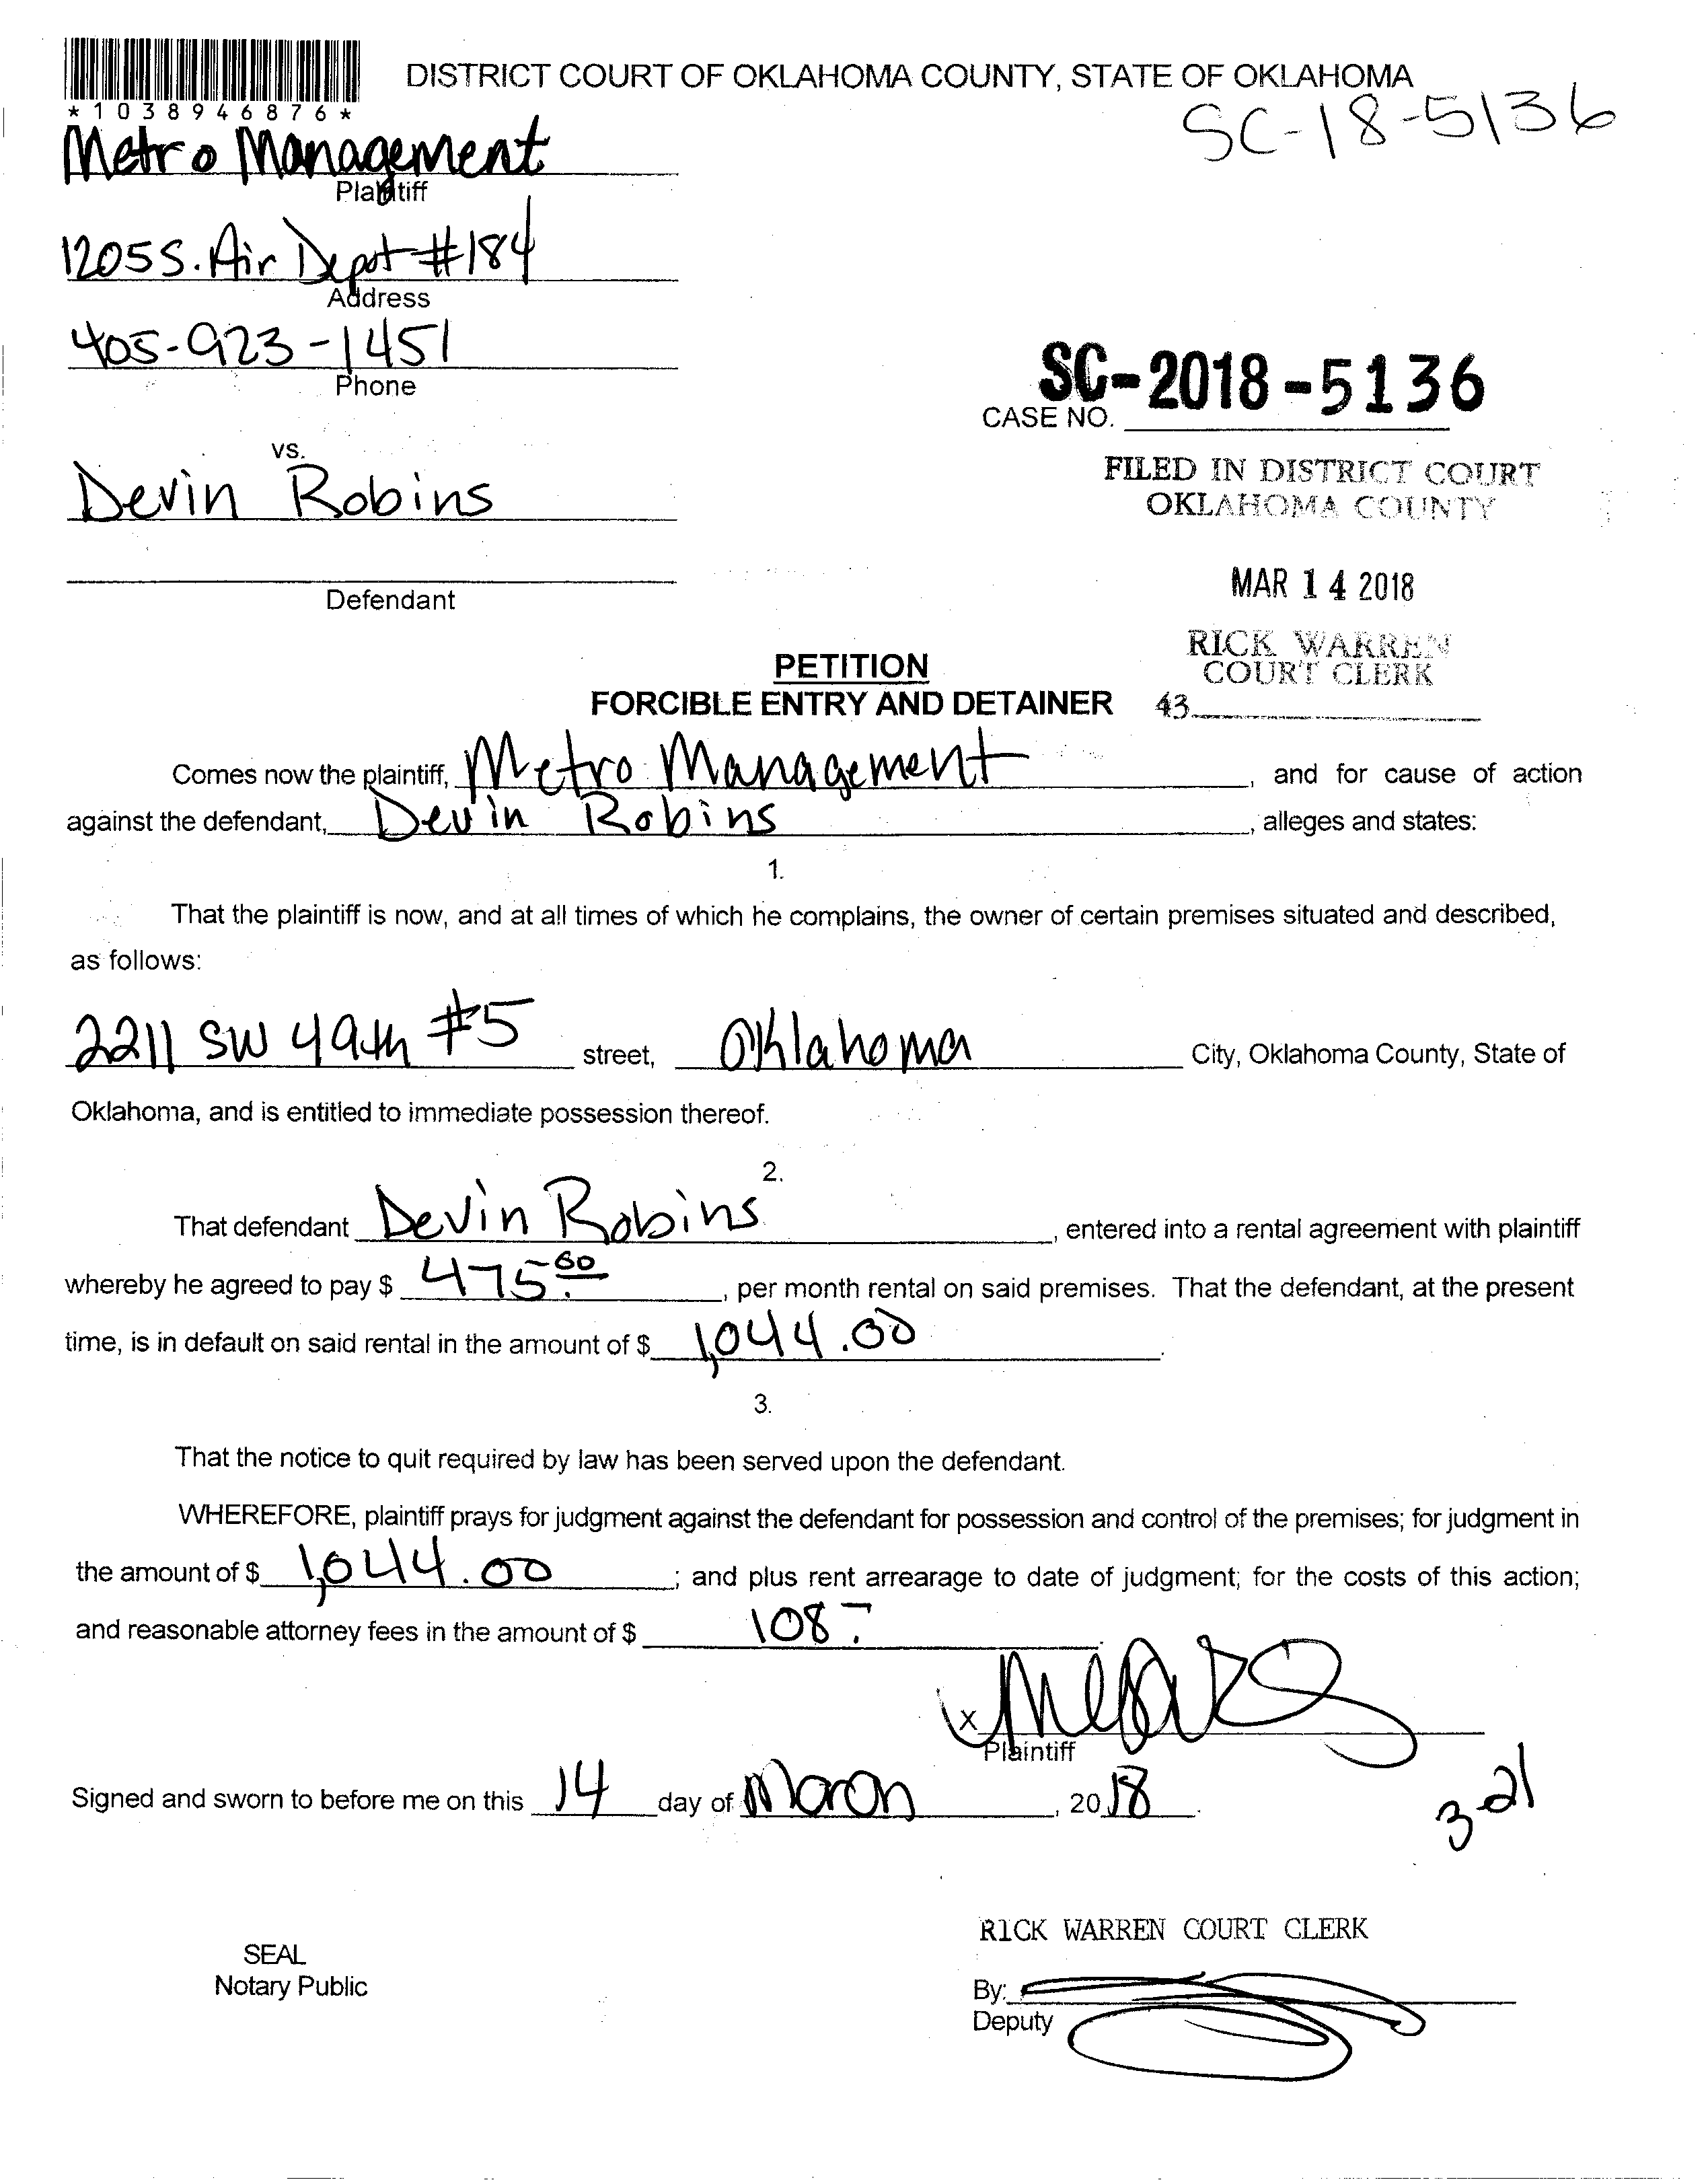 DISTRICT COURT OF OKLAHOMA COUNTY, STATE OF OKLAHOMA
*1038946876*
SC-18-5136
Metro Management
Plaintiff
1205 S. Air Depot #184
Address
405-923-1451
Phone
SC-2018-5136
CASE NO.
vs.
FILED IN DISTRICT COURT
OKLAHOMA COUNTY
Devin Robins
MAR 14 2018
Defendant
RICK WARREN
COURT CLERK
PETITION
FORCIBLE ENTRY AND DETAINER
43
Comes now the plaintiff, Metro Management, and for cause of action
against the defendant, Devin Robins, alleges and states:
1.
That the plaintiff is now, and at all times of which he complains, the owner of certain premises situated and described,
as follows:
2211 SW 49th #5 street, Oklahoma City, Oklahoma County, State of
Oklahoma, and is entitled to immediate possession thereof.
2.
That defendant Devin Robins, entered into a rental agreement with plaintiff
whereby he agreed to pay $ 475.00, per month rental on said premises. That the defendant, at the present
time, is in default on said rental in the amount of $ 1,044.00.
3.
That the notice to quit required by law has been served upon the defendant.
WHEREFORE, plaintiff prays for judgment against the defendant for possession and control of the premises; for judgment in
the amount of $ 1,044.00; and plus rent arrearage to date of judgment; for the costs of this action;
and reasonable attorney fees in the amount of $ 108.-
x
Plaintiff
Signed and sworn to before me on this 14 day of March, 2018.
3-21
RICK WARREN COURT CLERK
SEAL
Notary Public
By:
Deputy